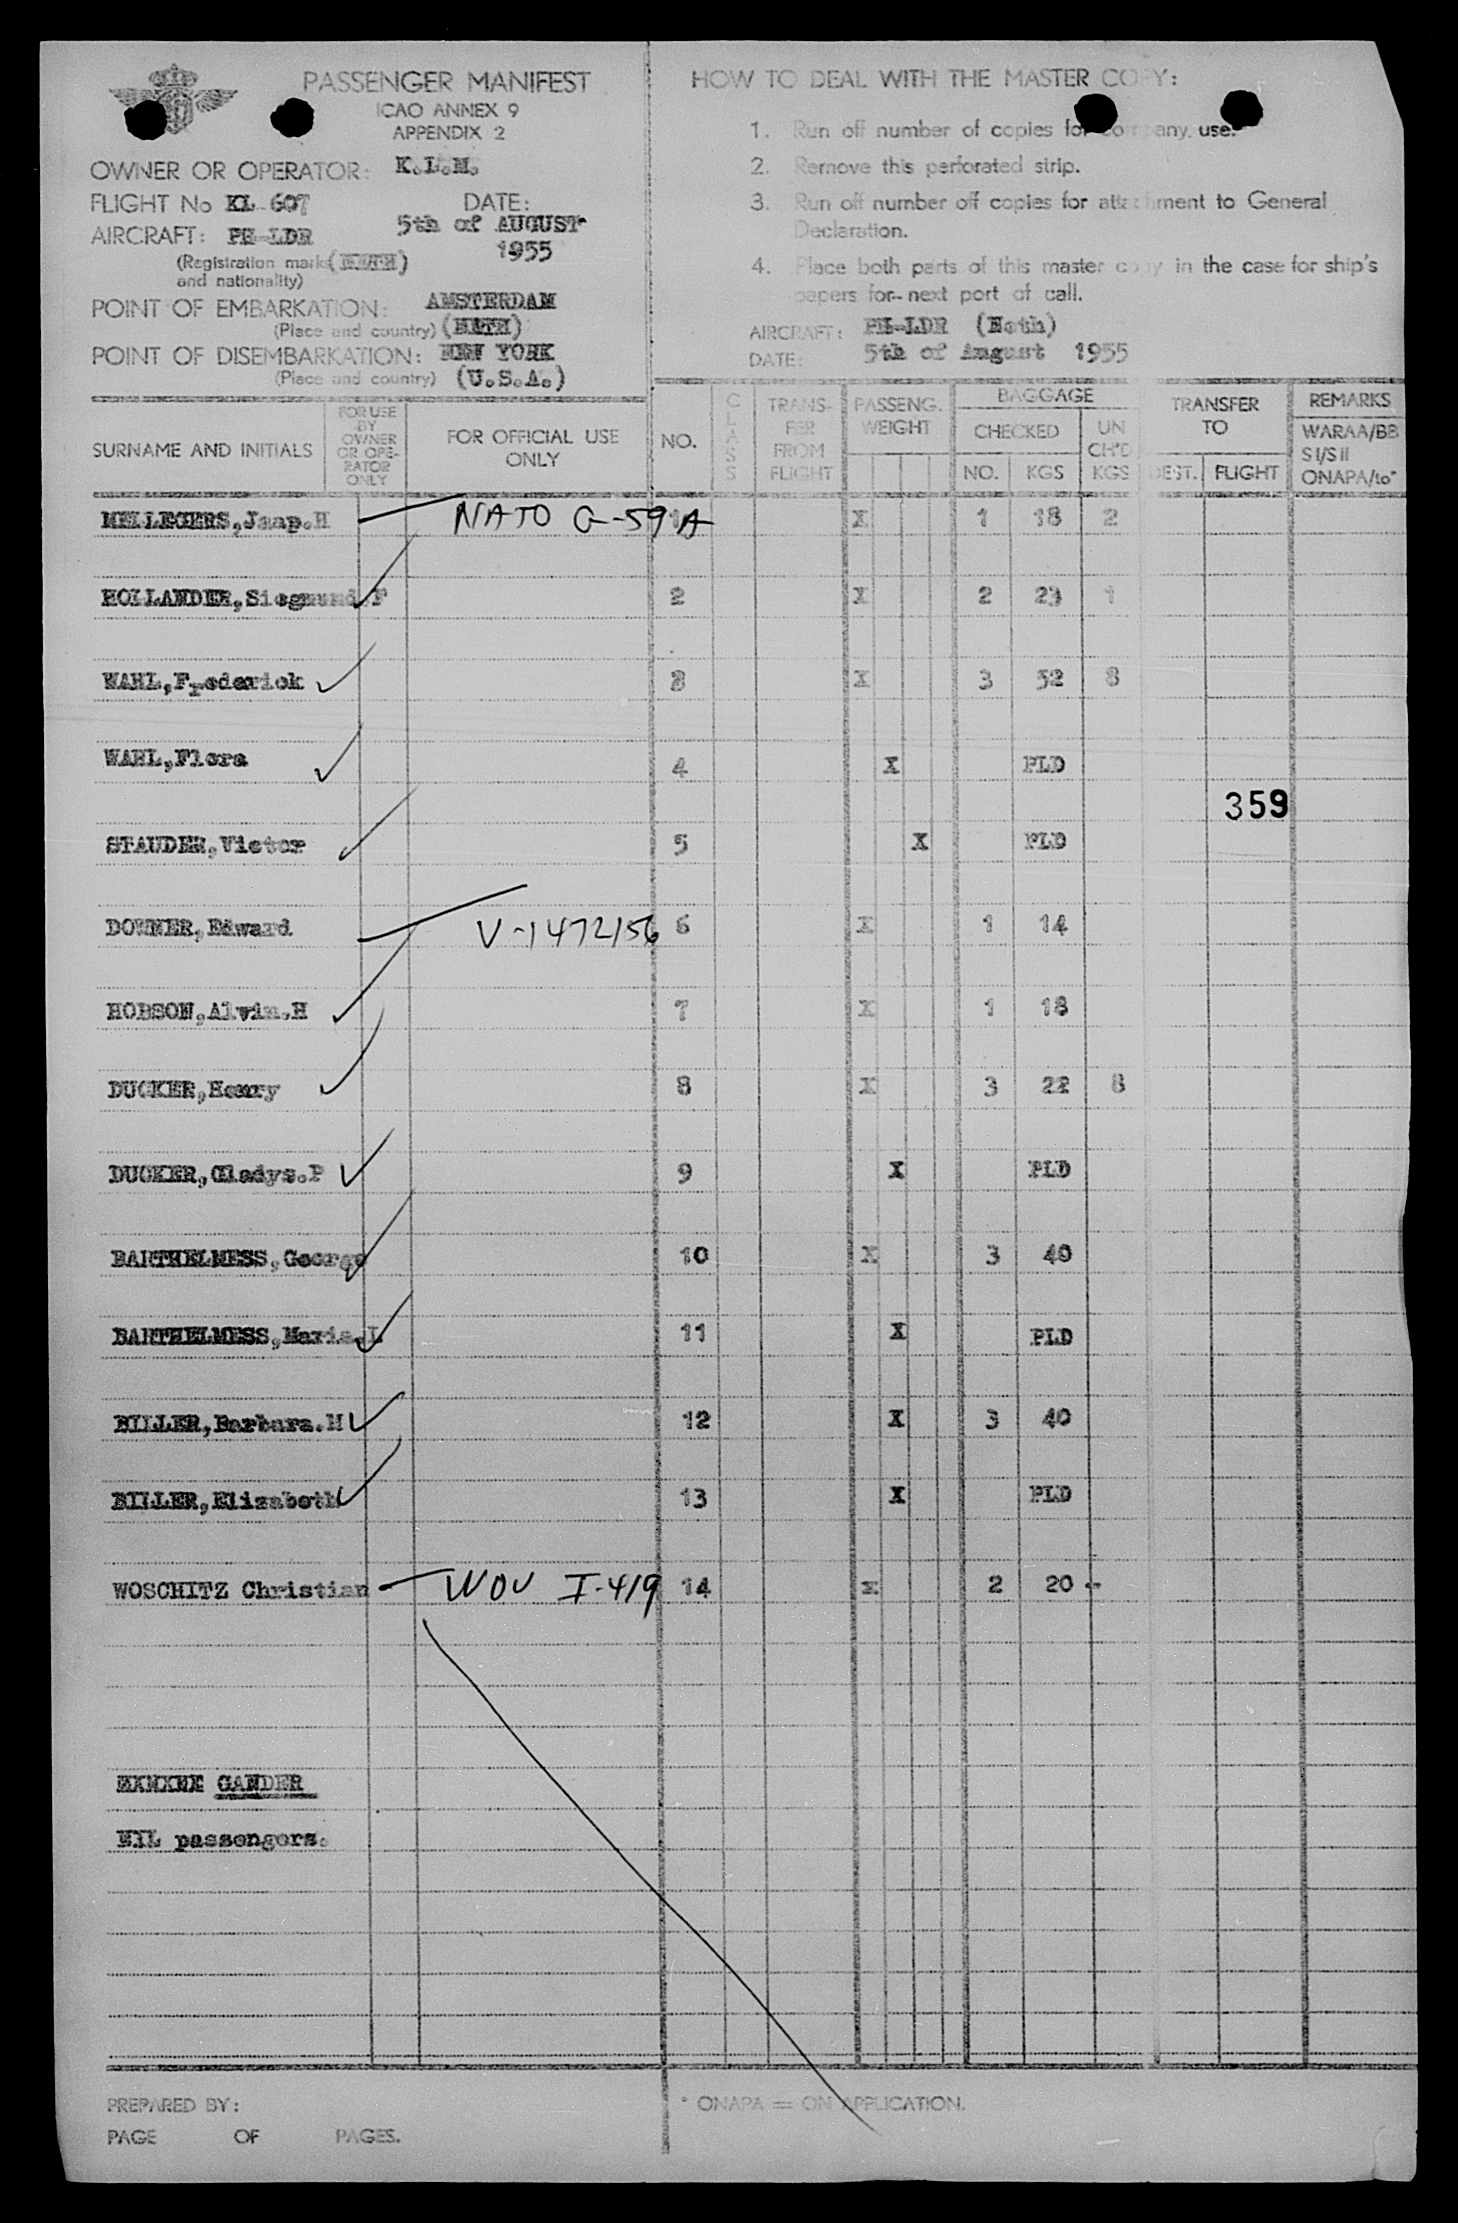 PASSENGER MANIFEST
ICAO ANNEX 9
APPENDIX 2
OWNER OR OPERATOR: K.L.M.
FLIGHT No KL 607 DATE:
5th of AUGUST
1955
AIRCRAFT: PH-LDR
(Registration marks (NETH)
and nationality)
POINT OF EMBARKATION: AMSTERDAM
(Place and country) (NETH)
POINT OF DISEMBARKATION: NEW YORK
(Place and country) (U.S.A.)
HOW TO DEAL WITH THE MASTER COPY:
1. Run off number of copies for company use.
2. Remove this perforated strip.
3. Run off number off copies for attachment to General
Declaration.
4. Place both parts of this master copy in the case for ship's
papers for next port of call.
AIRCRAFT: PH-LDR (Neth)
DATE: 5th of August 1955
SURNAME AND INITIALS
FOR USE
BY
OWNER
OR OPE-
RATOR
ONLY
FOR OFFICIAL USE
ONLY
NO.
CLASS
TRANS-
FER
FROM
FLIGHT
PASSENG.
WEIGHT
BAGGAGE
CHECKED
NO. KGS
UN
CH'D
KGS
TRANSFER
TO
DEST. FLIGHT
REMARKS
WARAA/BB
S I/S II
ONAPA/to*
MELLEGERS,Jaap.H NATO G-59A 1 X 1 18 2
HOLLANDER,Siegmund.F 2 X 2 23 1
WAHL,Frederick 3 X 3 52 8
WAHL,Flora 4 X PLD
359
STAUDER,Victor 5 X PLD
DOWNER,Edward V-1472156 6 X 1 14
HOBSON,Alvin.H 7 X 1 18
DUCKER,Henry 8 X 3 22 8
DUCKER,Gladys.P 9 X PLD
BARTHELMESS,George 10 X 3 40
BARTHELMESS,Maria.L 11 X PLD
BILLER,Barbara.M 12 X 3 40
BILLER,Elizabeth 13 X PLD
WOSCHITZ Christian WOV I-419 14 x 2 20 -
GANDER
NIL passengers.
PREPARED BY:
PAGE OF PAGES.
* ONAPA = ON APPLICATION.